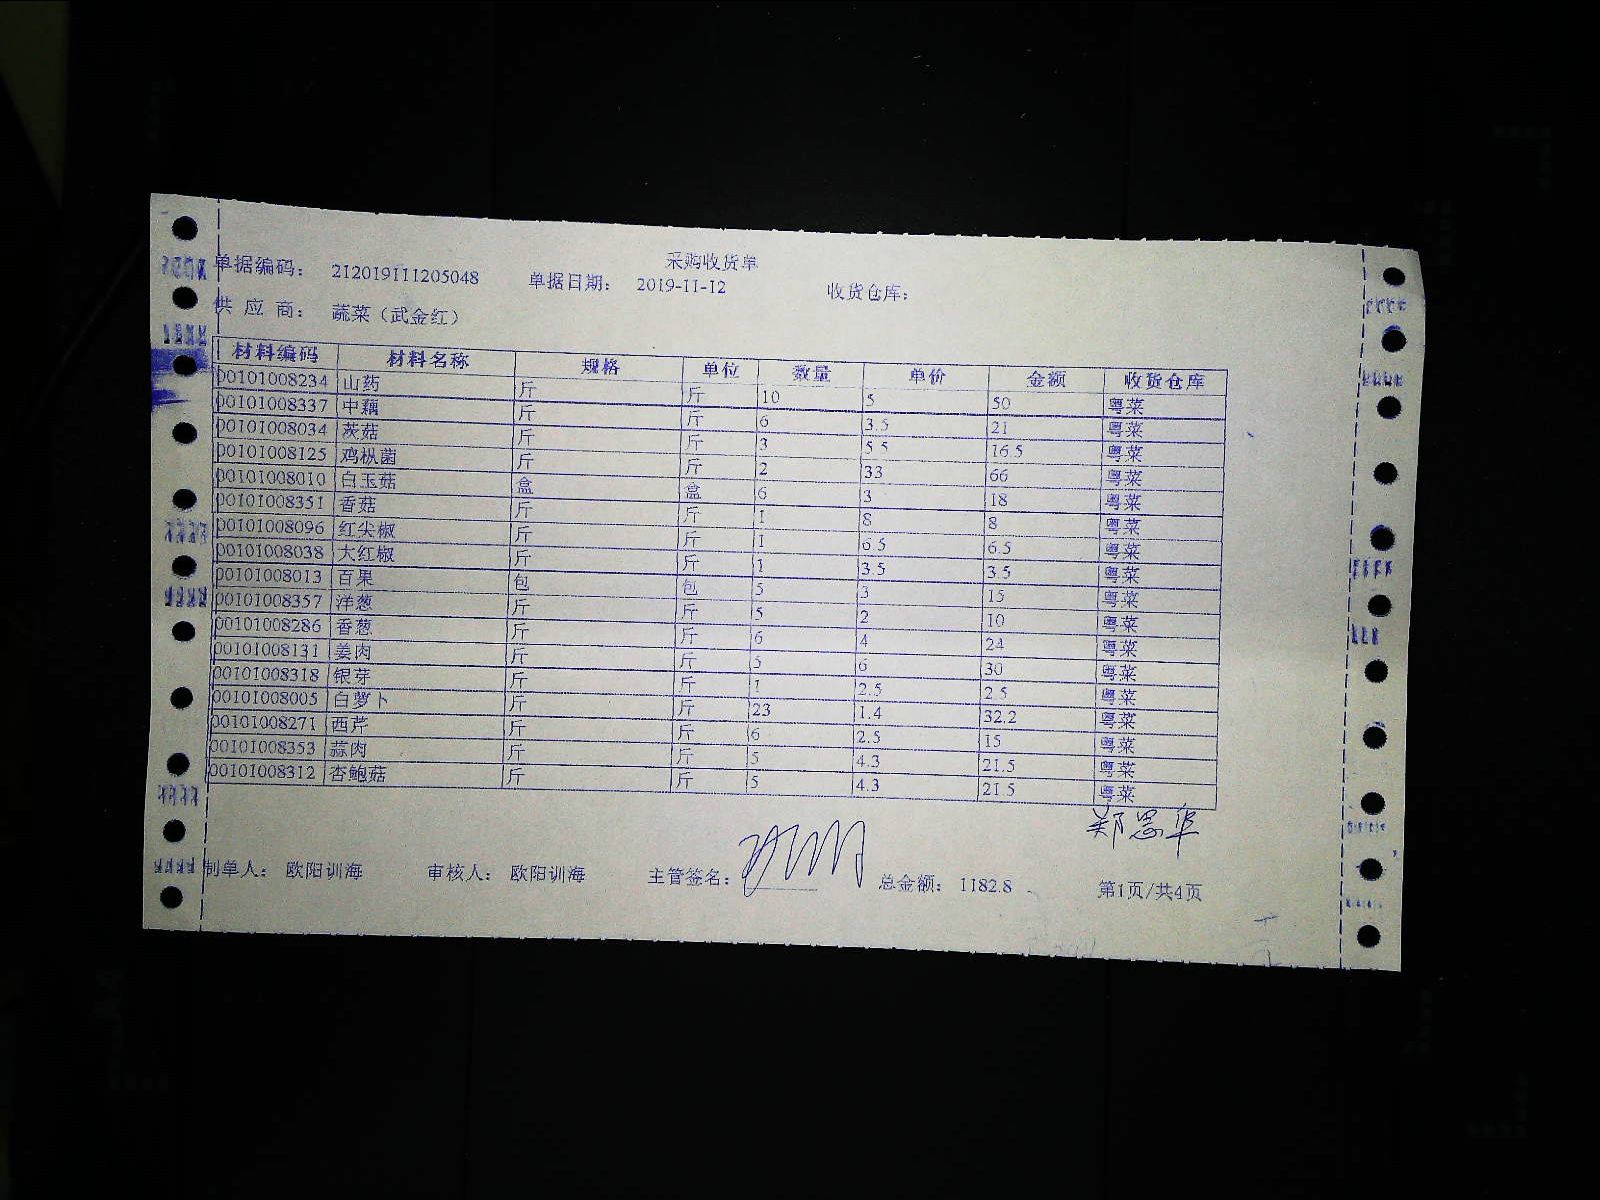 采购收货单
单据编码： 212019111205048 单据日期： 2019-11-12 收货仓库：
供 应 商： 蔬菜（武金红）
材料编码 材料名称 规格 单位 数量 单价 金额 收货仓库
00101008234 山药 斤 斤 10 5 50 粤菜
00101008337 中藕 斤 斤 6 3.5 21 粤菜
00101008034 茨菇 斤 斤 3 5.5 16.5 粤菜
00101008125 鸡枞菌 斤 斤 2 33 66 粤菜
00101008010 白玉菇 盒 盒 6 3 18 粤菜
00101008351 香菇 斤 斤 1 8 8 粤菜
00101008096 红尖椒 斤 斤 1 6.5 6.5 粤菜
00101008038 大红椒 斤 斤 1 3.5 3.5 粤菜
00101008013 百果 包 包 5 3 15 粤菜
00101008357 洋葱 斤 斤 5 2 10 粤菜
00101008286 香葱 斤 斤 6 4 24 粤菜
00101008131 姜肉 斤 斤 5 6 30 粤菜
00101008318 银芽 斤 斤 1 2.5 2.5 粤菜
00101008005 白萝卜 斤 斤 23 1.4 32.2 粤菜
00101008271 西芹 斤 斤 6 2.5 15 粤菜
00101008353 蒜肉 斤 斤 5 4.3 21.5 粤菜
00101008312 杏鲍菇 斤 斤 5 4.3 21.5 粤菜
制单人： 欧阳训海 审核人： 欧阳训海 主管签名： 总金额： 1182.8 第1页/共4页